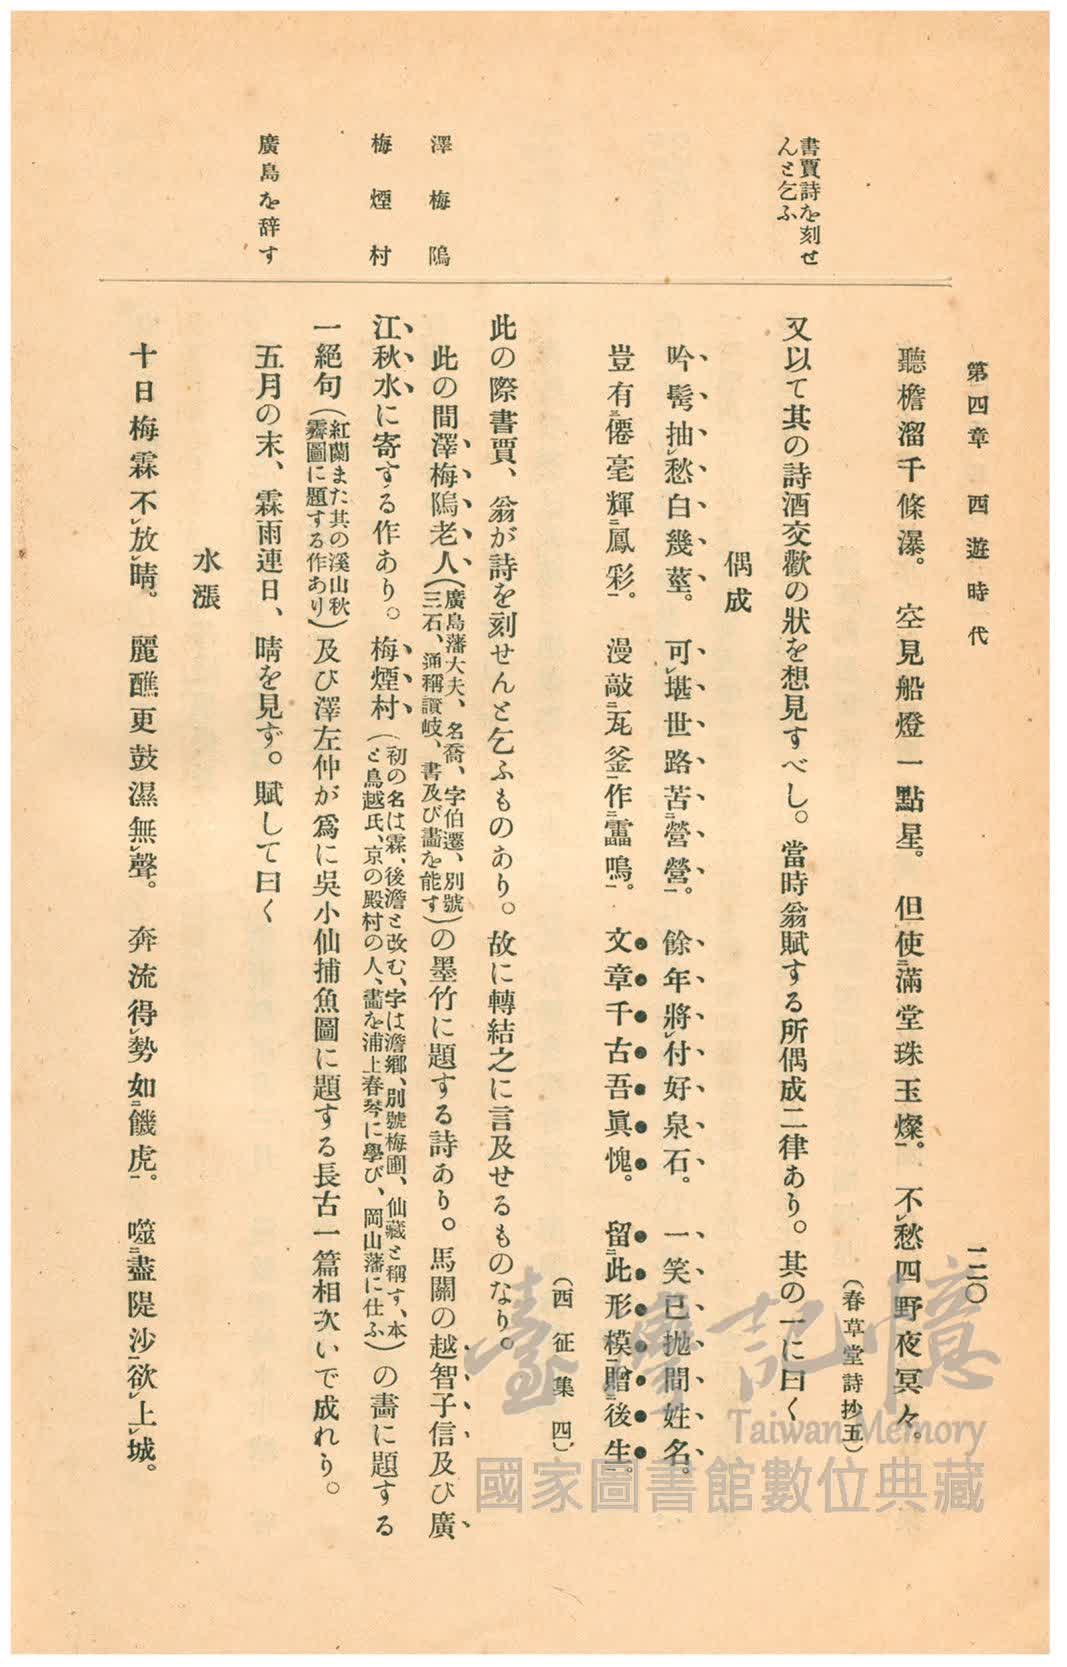 第四章 西遊時代
一二〇
聽檐溜千條瀑。空見船燈一點星。但使滿堂珠玉燦。不愁四野夜冥々。
(春草堂詩抄五)
書賈詩を刻せ
んと乞ふ
又以て其の詩酒交歡の狀を想見すべし。當時翁賦する所偶成二律あり。其の一に曰く
偶成
吟髩抽愁白幾莖。可堪世路苦營營。餘年將付好泉石。一笑已拋閒姓名。
豈有僊毫輝鳳彩。漫敲瓦釜作靁鳴。文章千古吾眞愧。留此形模贈後生。
(西征集 四)
此の際書賈、翁が詩を刻せんと乞ふものあり。故に轉結之に言及せるものなり。
澤梅隖
此の間澤梅隖老人(廣島藩大夫、名喬、字伯遷、別號三石、通稱讃岐、書及び畵を能す)の墨竹に題する詩あり。馬關の越智子信及び廣
梅煙村
江秋水に寄する作あり。梅煙村(初の名は霖、後澹と改む、字は澹鄕、別號梅圃、仙藏と稱す、本と鳥越氏、京の殿村の人、畵を浦上春琴に學び、岡山藩に仕ふ)の畵に題する
一絕句(紅蘭また其の溪山秋霽圖に題する作あり)及び澤左仲が爲に吳小仙捕魚圖に題する長古一篇相次いで成れり。
廣島を辞す
五月の末、霖雨連日、晴を見ず。賦して曰く
水漲
十日梅霖不放晴。麗譙更鼓濕無聲。奔流得勢如饑虎。噬盡隄沙欲上城。
臺灣記憶
Taiwan Memory
國家圖書館數位典藏